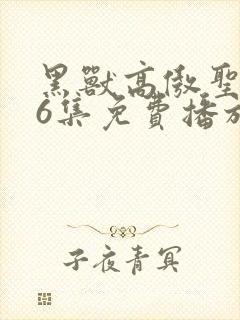 黑獸高傲聖
6集免費播放
子夜青冥